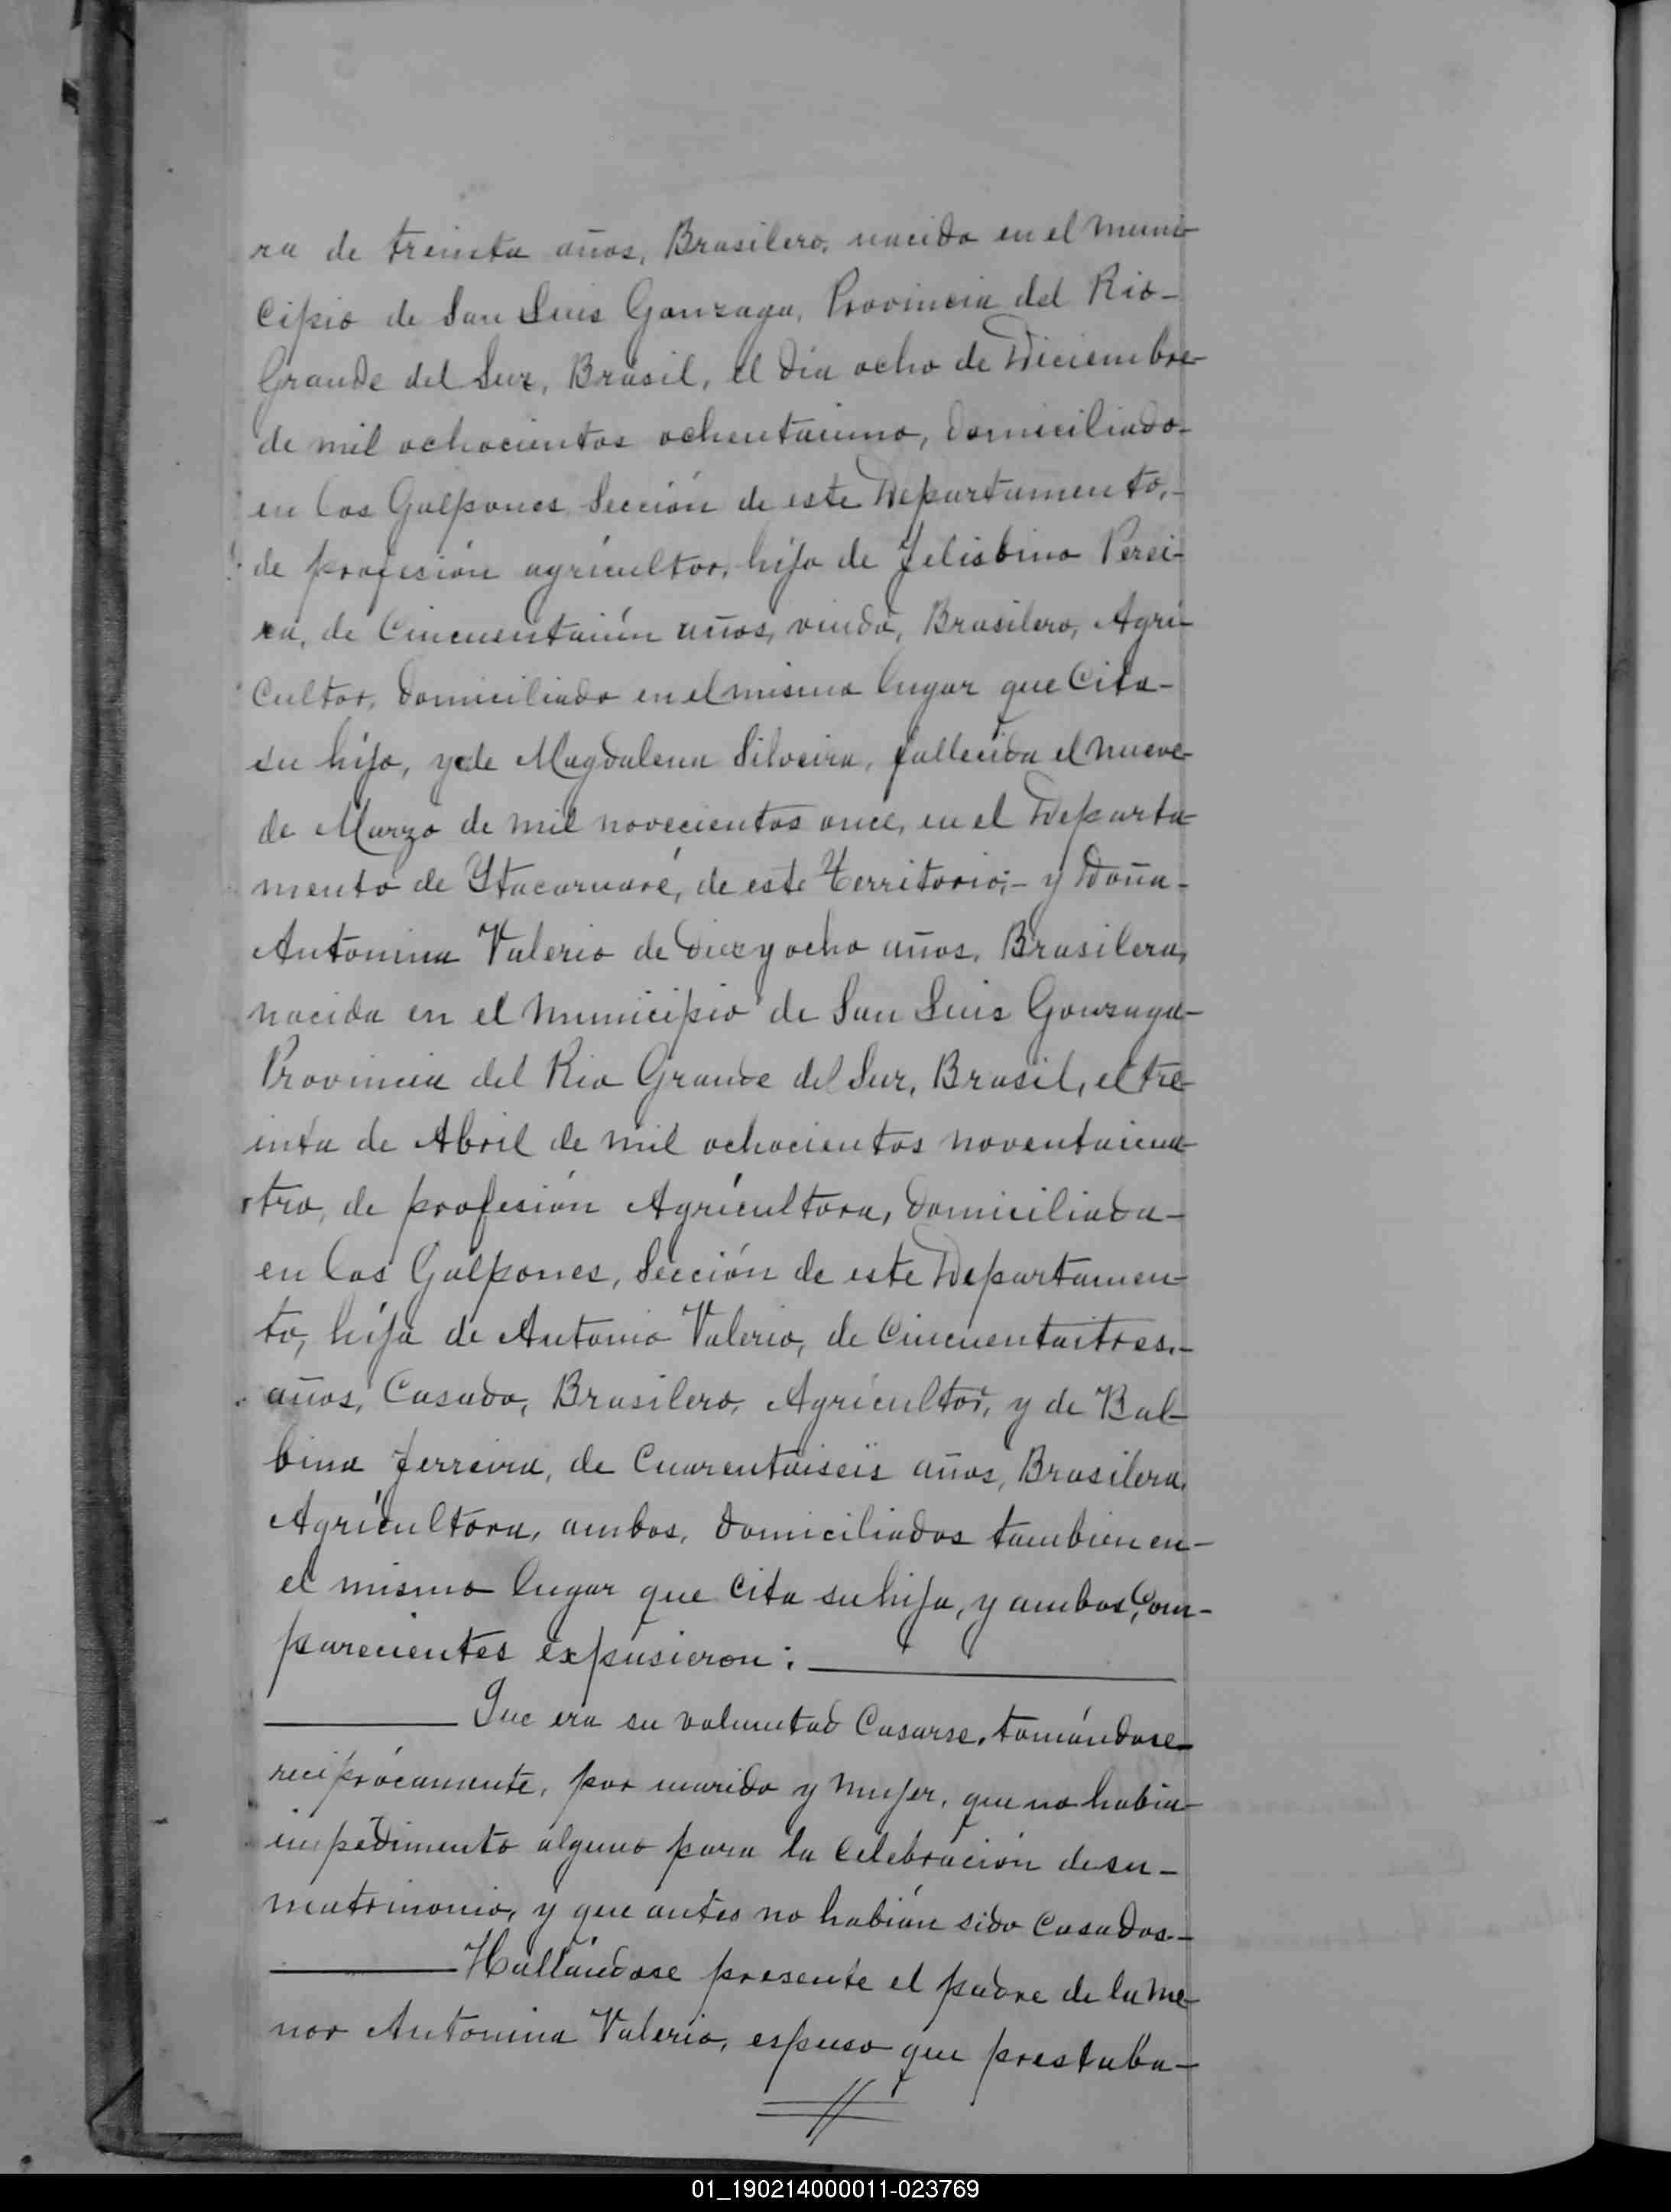 ra de treinta años, Brasilero, nacido en el muni-
cipio de San Luis Gonzaga, Provincia del Rio-
Grande del Sur, Brasil, el dia ocho de Diciembre-
de mil ochocientos ochentaiuno, domiciliado-
en los Galpones Sección de este Departamento,-
de profesión agricultor, hijo de Felisbino Perei-
ra, de Cincuentaiún años, viudo, Brasilero, Agri-
cultor, domiciliado en el mismo lugar que Cita-
su hijo, y de Magdalena Silveira, fallecida el nueve-
de Marzo de mil novecientos once, en el Departa-
mento de Itacaruaré, de este Territorio;- y Doña-
Antonina Valerio de diez y ocho años, Brasilera,
nacida en el municipio de San Luis Gonzaga-
Provincia del Rio Grande del Sur, Brasil, el tre-
inta de Abril de mil ochocientos noventaicua-
tro, de profesión Agrícultora, domiciliada-
en los Galpones, Sección de este Departamen-
to, hija de Antonio Valerio, de Cincuentaitres.-
años, Casado, Brasilero, Agrícultor, y de Bal-
bina Ferreira, de Cuarentaiseis años, Brasilera,
Agrícultora, ambos, domiciliados tambien en-
el mismo lugar que Cita su hija, y ambos, Com-
parecientes expusieron:
Que era su voluntad Casarse, tomándose-
reciprócamente, por marido y mujer, que no habia-
impedimento alguno para la Celebración de su-
matrimonio, y que antes no habián sido Casados.-
Hallándose presente el padre de la me-
nor Antonina Valerio, espuso que prestaba-
01_190214000011-023769